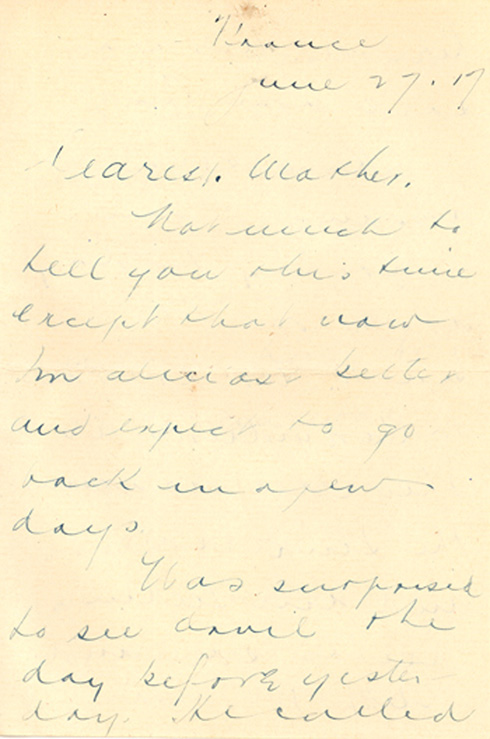 France
June 27.17
Dearest. Mother.
Not much to
tell you this time
except that now
Im almost better
and expect to go
back in a few
days.
Was surprised
to see Orvil the
day before yester
day. He called